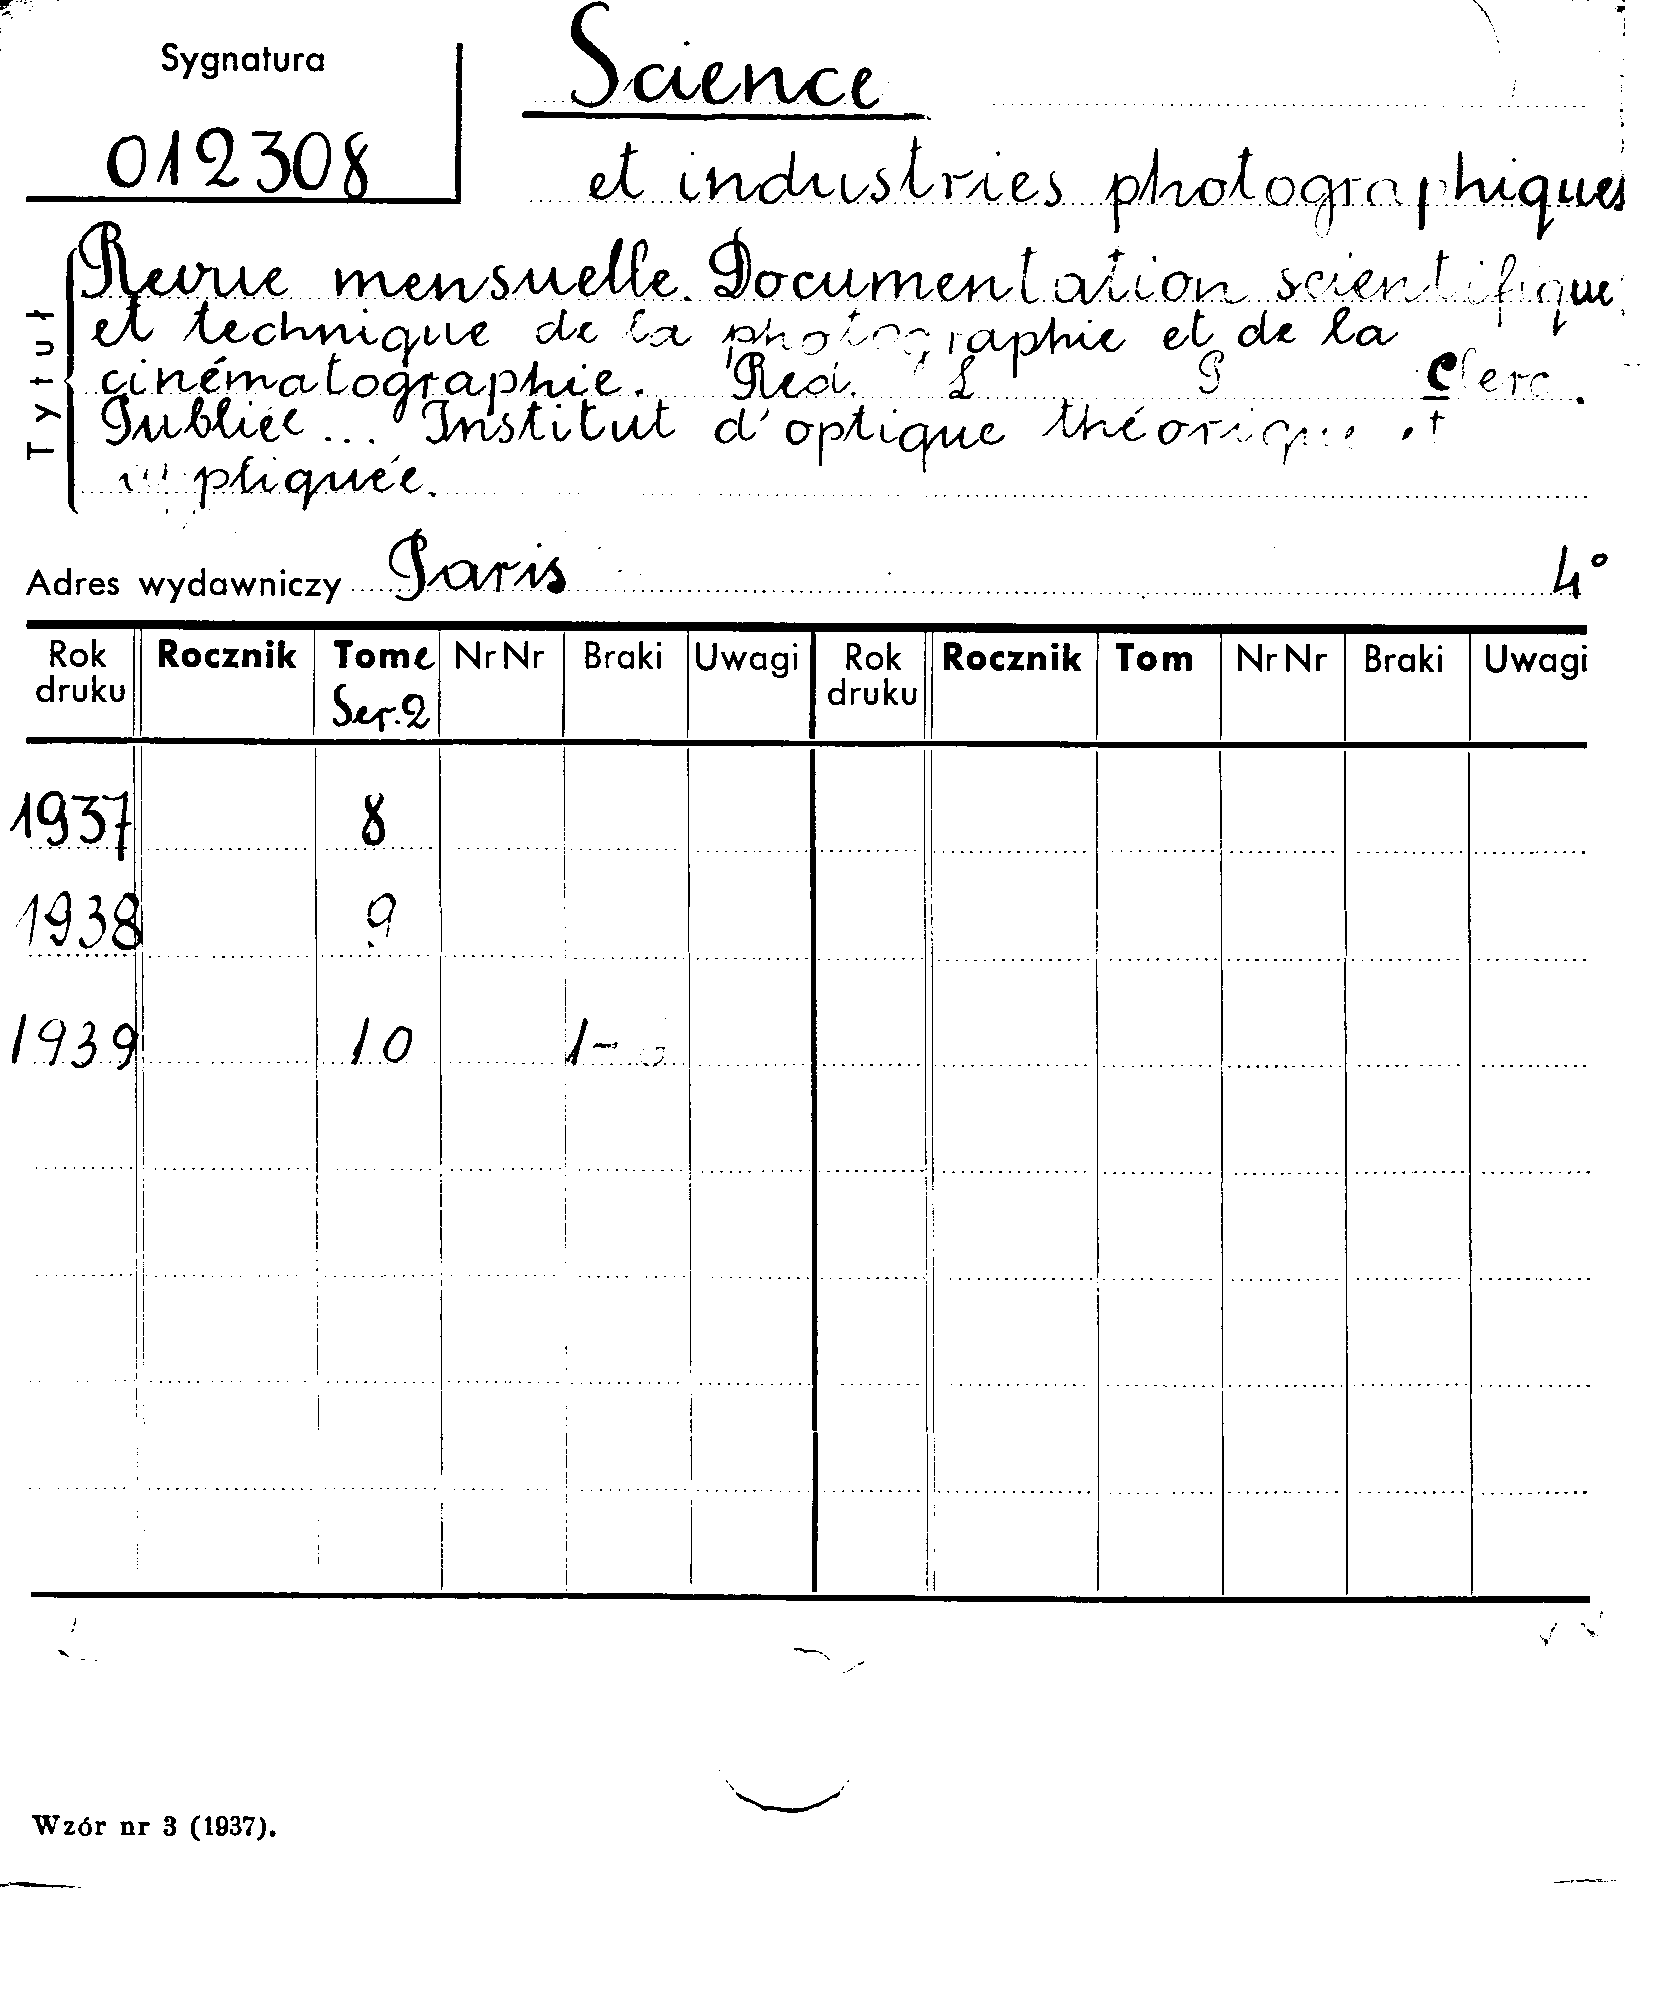 Sygnatura
012308
Science
et industries photographiques
Tytuł
Revue mensuelle. Documentation scientifique
et technique de la photographie et de la
cinématographie. Red. L P Clerc.
Publiée ... Institut d'optique théorique et
appliquée.
Adres wydawniczy Paris 4°
Rok druku Rocznik Tome Ser. 2 Nr Nr Braki Uwagi Rok druku Rocznik Tom Nr Nr Braki Uwagi
1937 8
1938 9
1939 10 1-
Wzór nr 3 (1937).